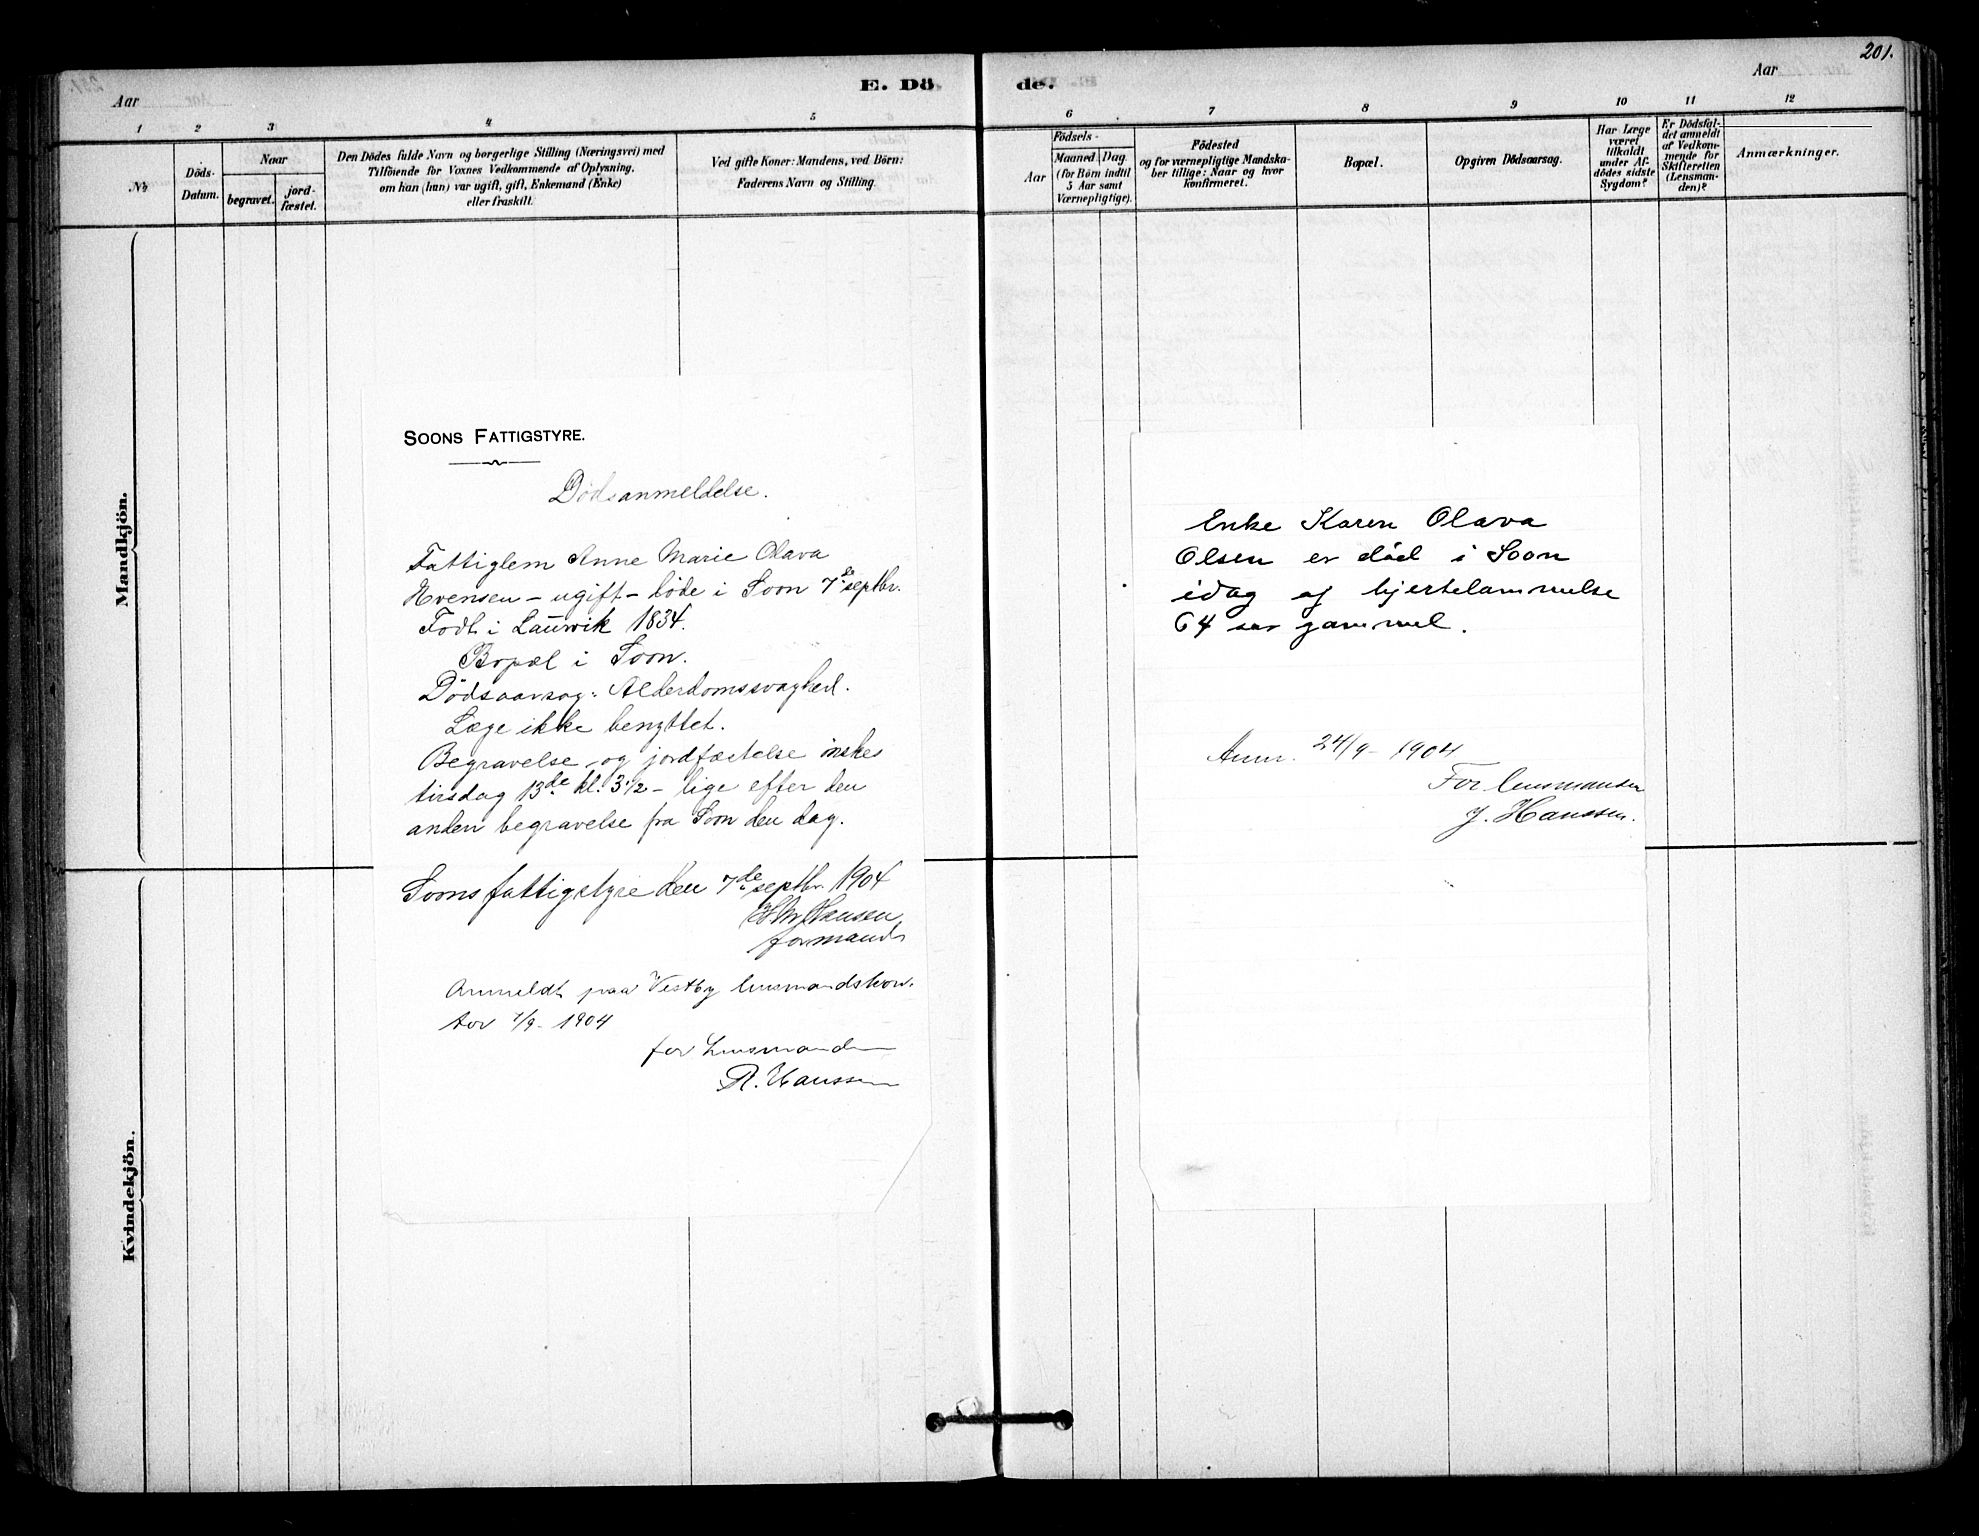 201.
E. Döde.
Aar
Aar
1 2 3 4 5 6 7 8 9 10 11 12
No
Döds-Datum.
Naar
begravet.
jordfæstet.
Den Dödes fulde Navn og borgerlige Stilling (Næringsvei) med
Tilföiende for Voxnes Vedkommende af Oplysning,
om han (hun) var ugift, gift, Enkemand (Enke)
eller fraskilt.
Ved gifte Koner: Mandens, ved Börn:
Faderens Navn og Stilling.
Födsels-
Aar
Maaned Dag
(for Börn indtil
5 Aar samt
Værnepligtige).
Födested
og for værnepligtige Mandska-
ber tillige: Naar og hvor
konfirmeret.
Bopæl.
Opgiven Dödsaarsag.
Har Læge
været
tilkaldt
under Af-
dödes sidste
Sygdom?
Er Dödsfal-
det anmeldt
af Vedkom-
mende for
Skifteretten
(Lensman-
den)?
Anmærkninger.
Mandkjön.
Kvindekjön.
SOONS FATTIGSTYRE.
Dödsanmeldelse.
Fattiglem Anne Marie Olava
Evensen - ugift - døde i Soon 7de septbr.
Födt i Laurvik 1834.
Bopæl i Soon.
Dödsaarsag: Alderdomssvaghed.
Læge ikke benyttet.
Begravelse og jordfæstelse önskes
tirsdag 13de kl. 3 1/2 - lige efter den
anden begravelse fra Soon den dag.
Soons fattigstyre den 7de septbr. 1904
Hansen
formand
Anmeldt paa Vestby lensmandskon-
tor 7/9 - 1904
for Lensmanden
R. Hanssen
Enke Karen Olava
Olsen er död i Soon
idag af hjertelammelse
64 aar gammel.
Anm. 24/9 - 1904
For lensmanden
J. Hanssen.